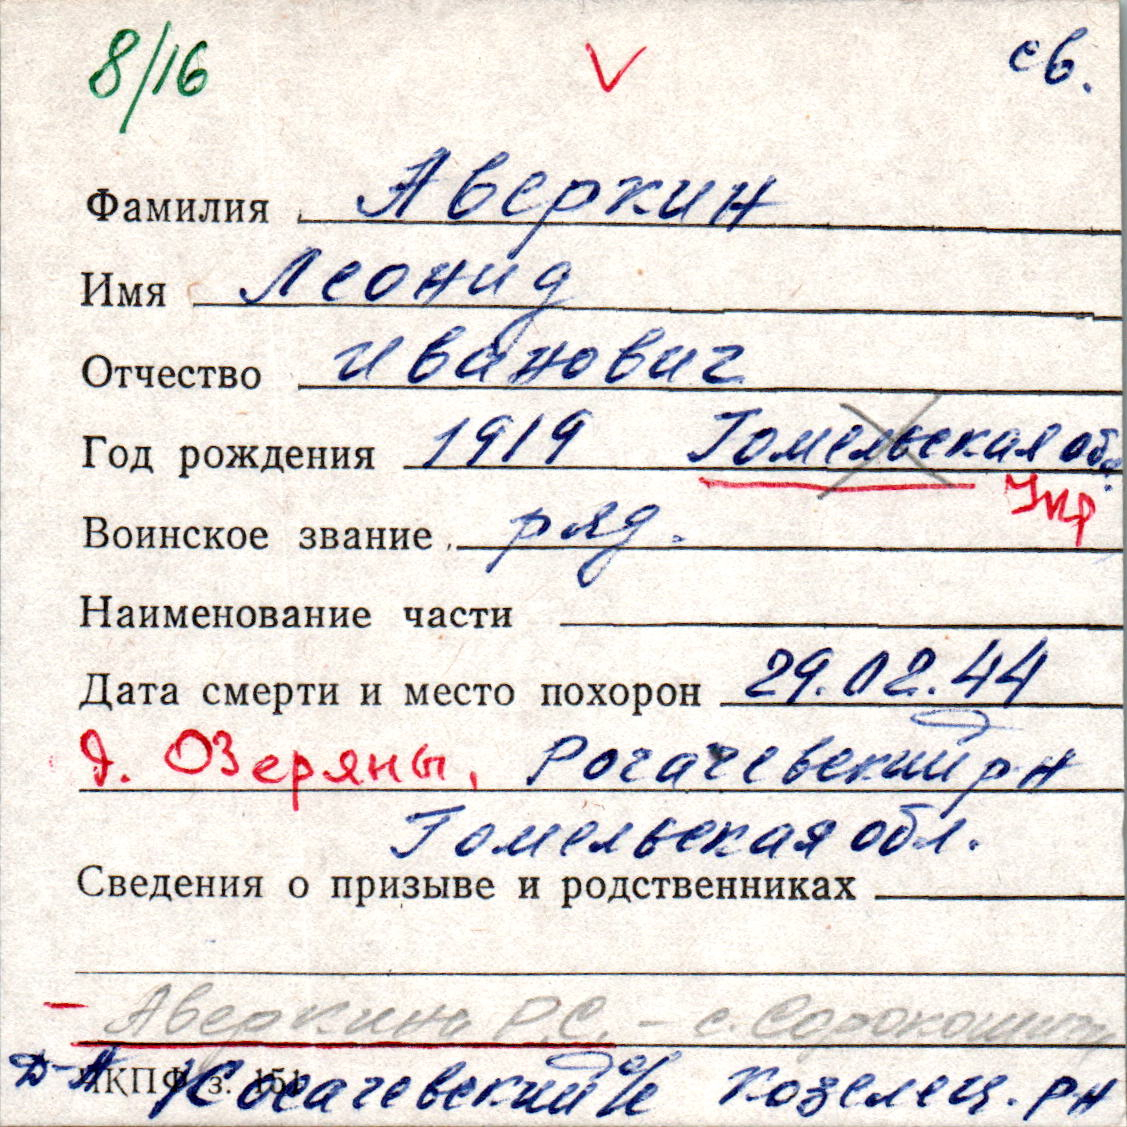 8/16 V св.
Фамилия Аверкин
Имя Леонид
Отчество Иванович
Год рождения 1919 Гомельская обл.
Укр
Воинское звание ряд.
Наименование части
Дата смерти и место похорон 29.02.44
д. Озеряны, Рогачевский р-н
Гомельская обл.
Сведения о призыве и родственниках
Аверкина Р.С. - с. Сорокошичи
с/с Козелец. р-н